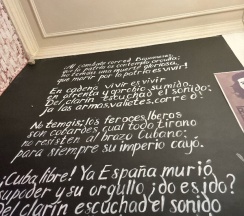 Al combate corred Bayameses
que la patria os contempla orgullosa
no temáis una muerte gloriosa,
que morir por la patria es vivir!
En cadena vivir es vivir
en afrenta y oprobio sumido.
Del clarin escuchad el sonido:
¡a las armas valientes corred!
No temáis; los feroces Iberos
son cobardes cual todo tirano
no resisten al brazo Cubano;
para siempre su imperio cayó.
¡Cuba libre! Ya España murió
su poder y su orgullo ¿do es ido?
Del clarin escuchad el sonido